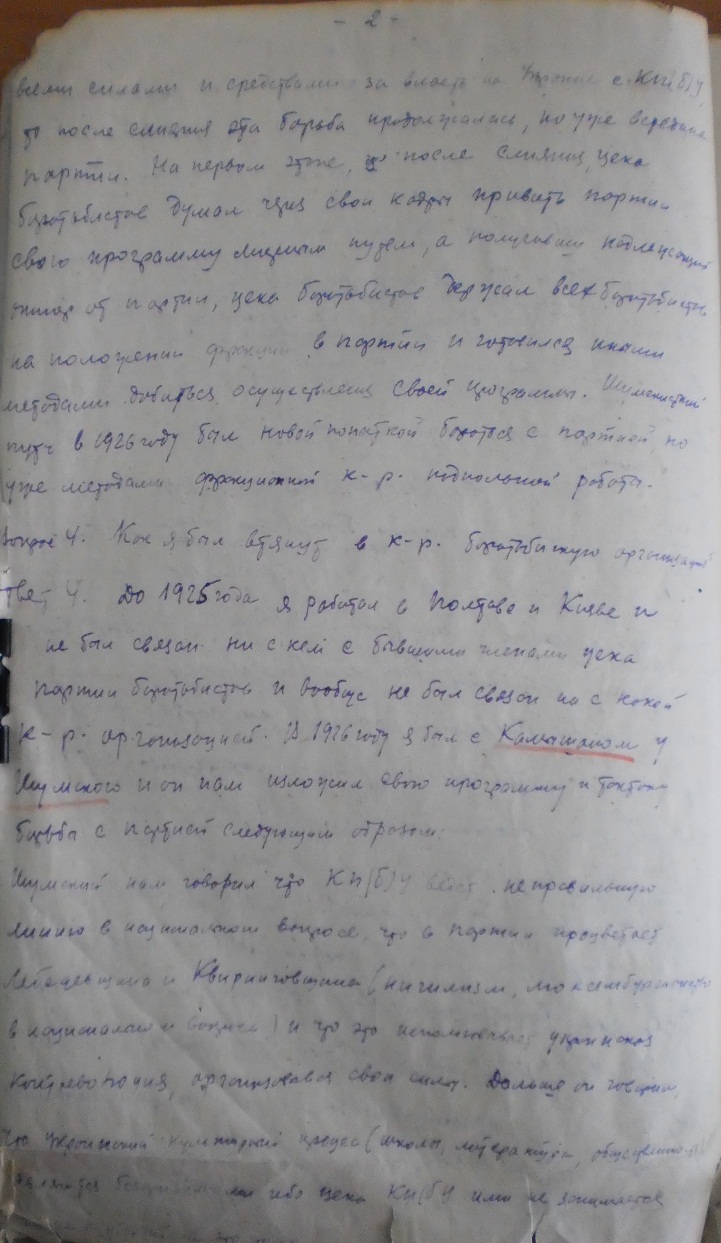 - 2 -
всеми силами и средствами за власть на Украине с КП(б)У,
то после слияния эта борьба продолжалась, но уже в середине
партии. На первом этапе, после слияния, цека
боротьбистов думал через свои кадры привить партии
свою программу мирным путем, а получивши надлежащий
отпор от партии, цека боротьбистов держал всех боротьбистов
на положении фракции в партии и готовился иными
методами добиться осуществления своей программы. Шумскистский
путь в 1926 году был новой попыткой бороться с партией, но
уже методами фракционной к-р. подпольной работы.
Вопрос 4. Как я был втянут в к-р. боротьбискую организацию
твет 4. До 1925 года я работал в Полтаве и Киеве и
не был связан ни с кем с бывшими членами цека
партии боротьбистов и вообще не был связан ни с какой
к-р. организацией. В 1926 году я был с Камышаном у
Шумского и он нам изложил свою программу и тактику
борьбы с партией следующим образом:
Шумский нам говорил что КП(б)У ведет неправильную
линию в национальном вопросе, что в партии процветает
Лебедевщина и Квиринговщина (нигилизм, люксембургианство
в национальном вопросе) и что это использовывает украинская
контрреволюция, организовывая свои силы. Дальше он говорил,
что Украинский культурный процесс (школы, литература,
ибо цека КП(б)У ими не занимается